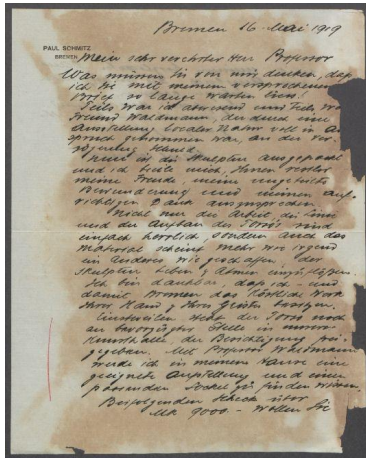 Bremen 16. Mai 1919
PAUL SCHMITZ
BREMEN
Mein sehr verehrter Herr Professor
Was müssen Sie von mir denken, dass
ich Sie mit meinem versprochenen
Brief so lange warten liess!
Teils war ich abwesend und teils war
Freund Waldmann, der durch eine
Ausstellung localer Natur voll in An
spruch genommen war, an der Ver-
zögerung schuld.
Nun ist die Skulptur ausgepackt
und ich beeile mich, Ihnen
meine Freude, meine
Bewunderung und meinen auf-
richtigen Dank auszusprechen.
Nicht nur die Arbeit, die Linie
und der Aufbau des Torso's sind
einfach herrlich, sondern auch das
Material scheint mehr wie irgend
ein Anderes wie geschaffen, der
Skulptur Leben & Atmen einzuflössen.
Ich bin dankbar, dass ich - und
damit Bremen das köstliche Werk
Ihrer Hand & Ihres Geistes besitzen.
Einstweilen steht der Torso noch
an bevorzugter Stelle in unserer
Kunsthalle der Besichtigung frei-
gegeben. Mit Professor Waldmann
werde ich in meinem Hause eine
geeignete Aufstellung und einen
passenden Sockel zu finden wissen.
Beifolgenden Scheck über
Mk 9000.- wollen Sie